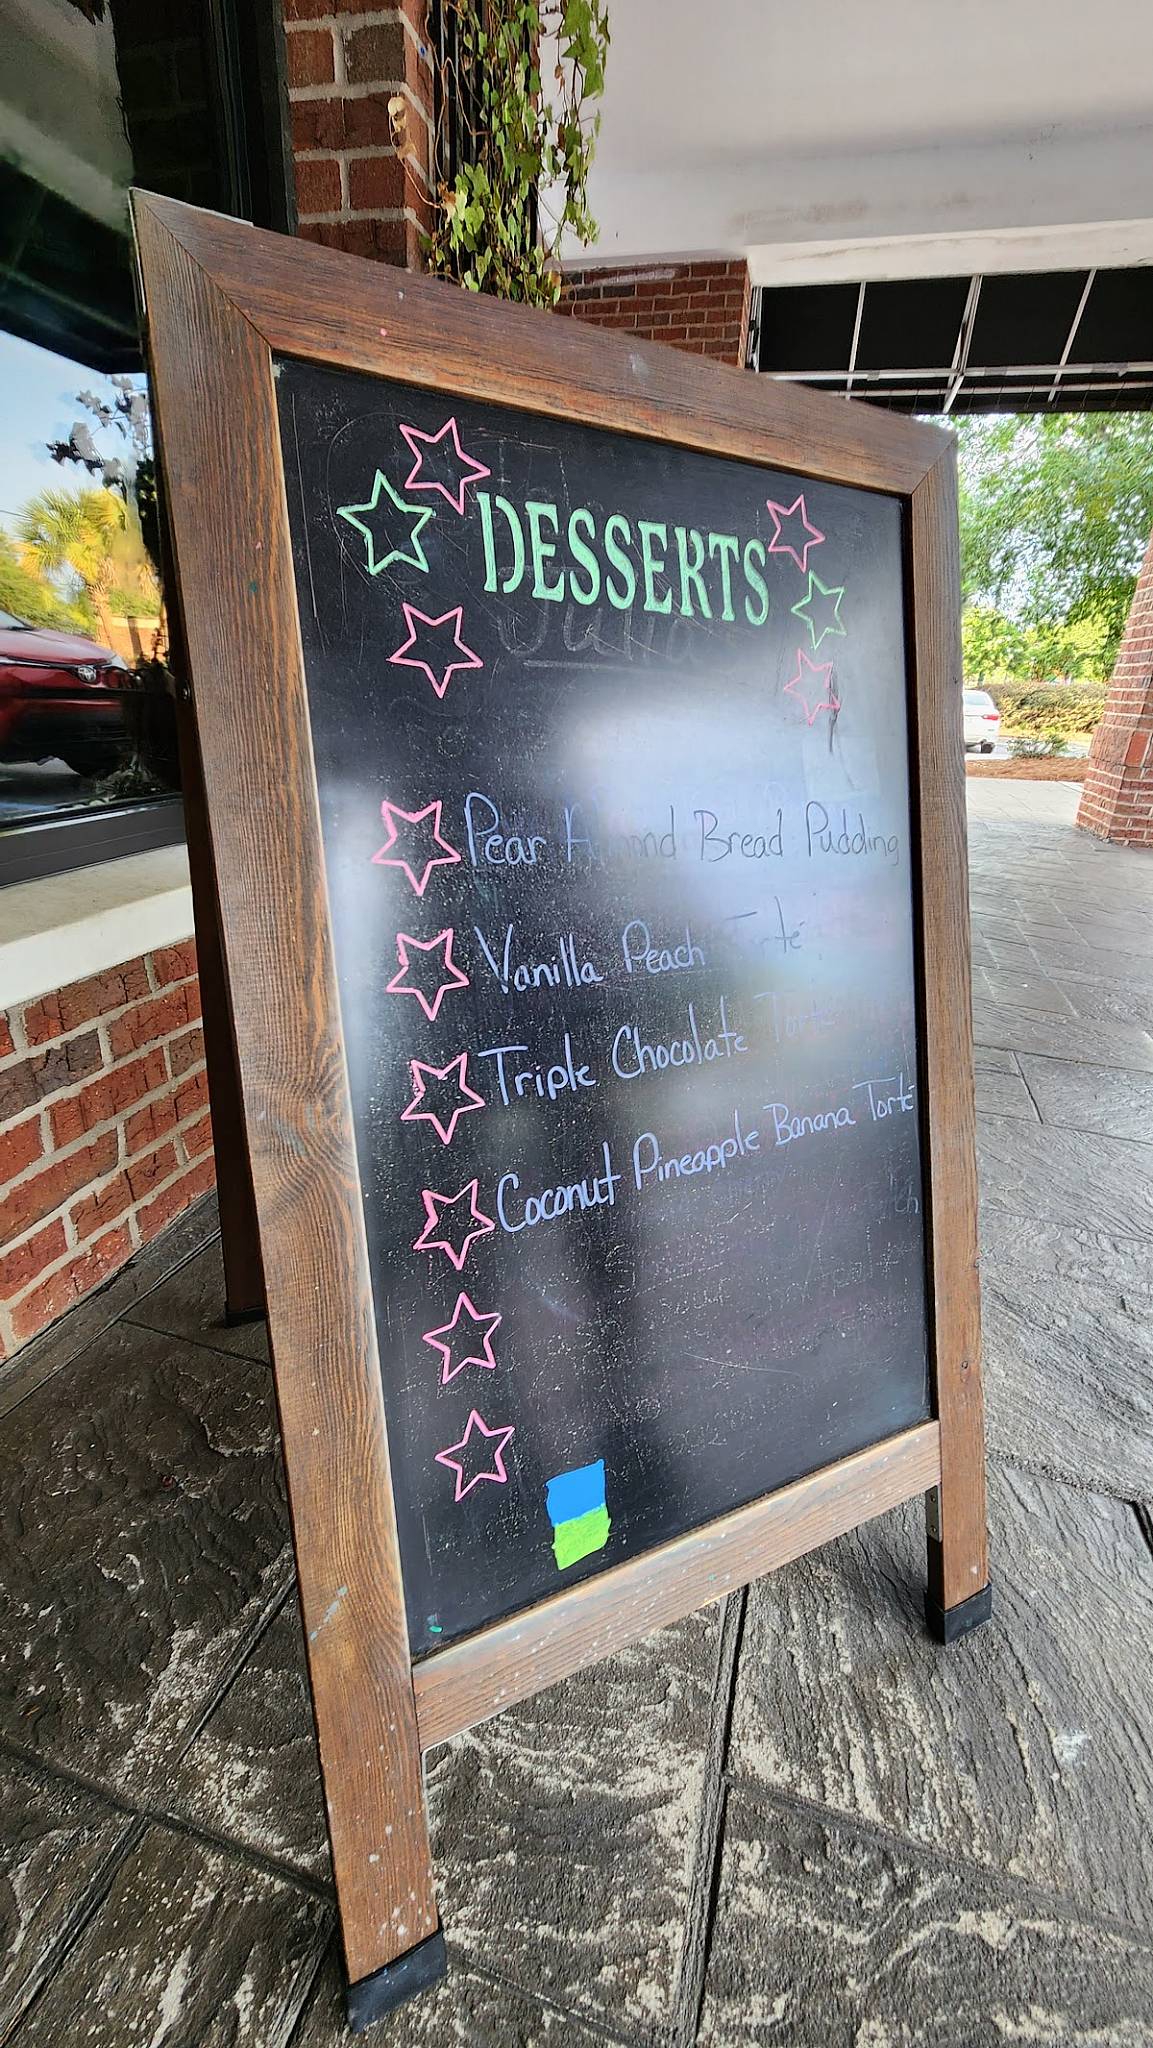 DESSERTS
Pear Almond Bread Pudding
Vanilla Peach Torté
Triple Chocolate Torte
Coconut Pineapple Banana Torté